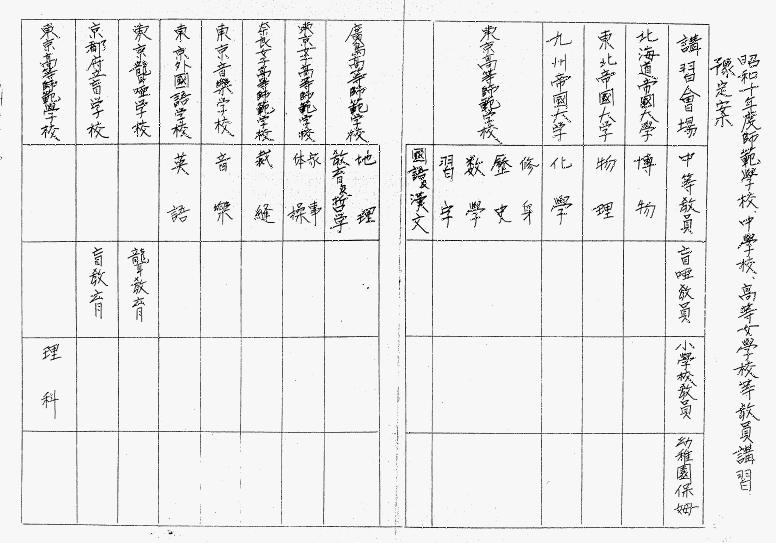 昭和十年度師範學校、中學校、高等女學校等教員講習
豫定案
講習會場 中等教員 盲唖教員 小學校教員 幼稚園保姆
北海道帝國大學 博物
東北帝國大学 物理
九州帝國大学 化學
東京高等師範学校 修身 歴史 数學 習字 國語及漢文
廣島高等師範学校 地理 教育及哲学
東京女子高等師範学校 家事 体操
奈良女子高等師範学校 裁縫
東京音樂学校 音樂
東京外國語学校 英語
東京聾唖学校 聾教育
京都府立盲学校 盲教育
東京高等師範学校 理科